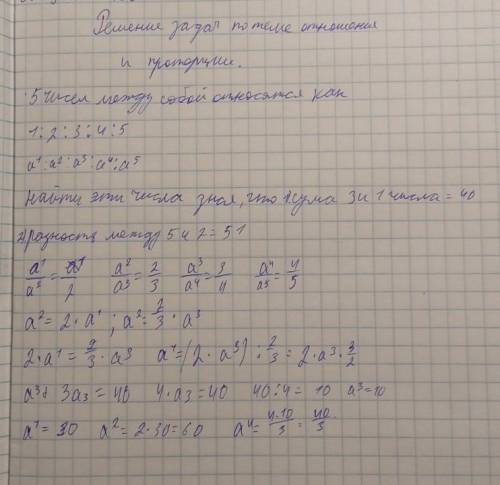 Решение задач по теме отношения
и пропорции.
5 чисел между собой относятся как
1:2:3:4:5
a¹:a²:a³:a⁴:a⁵
Найти эти числа зная, что 1) сума 3 и 1 числа = 40
2) разность между 5 и 2 = 51
a¹/a² = a¹/2 a²/a³ = 2/3 a³/a⁴ = 3/4 a⁴/a⁵ = 4/5
a² = 2·a¹ ; a² = 2/3 · a³
2·a¹ = 2/3 · a³ a¹ = (2·a³) : 2/3 = 2·a₃·3/2
a³+ 3a₃ = 40 4·a₃ = 40 40:4 = 10 a³=10
a¹ = 30 a² = 2·30 = 60 a⁴ = 4·10/3 = 40/3